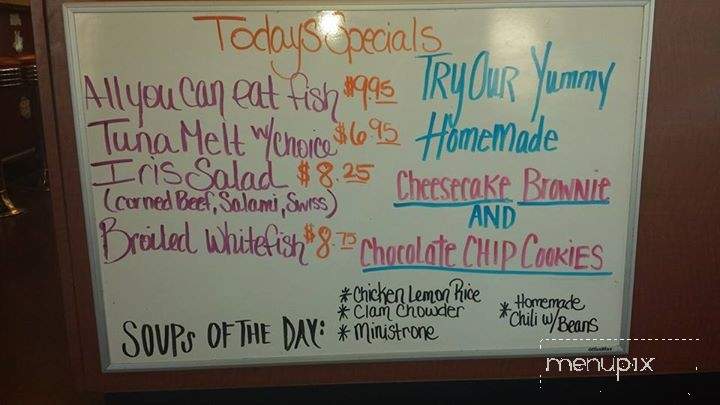 Todays Specials
All you can eat fish $9.95
Tuna Melt w/choice $6.95
Iris Salad $8.25
(corned Beef, Salami, Swiss)
Broiled Whitefish $8.75
Try Our Yummy
Homemade
Cheesecake Brownie
AND
Chocolate CHIP COOKIES
SOUPS OF THE DAY:
* Chicken Lemon Rice
* Clam Chowder
* Ministrone
* Homemade
Chili w/Beans
menupix